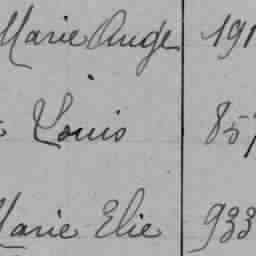 Marie Ange 191
Louis 857
Marie Elie 933